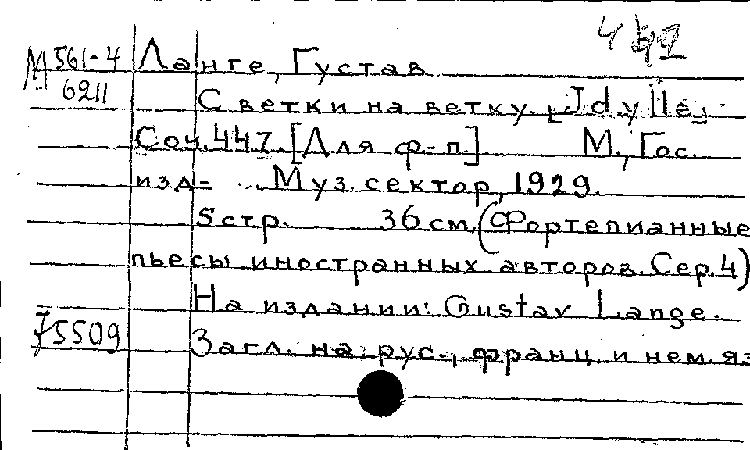 М 561-4 Ланге, Густав
6211 С ветки на ветку. [Idylle]
Соч. 447. [Для ф-п.] М., Гос.
изд- Муз. сектор, 1929.
5 стр. 36 см. (Фортепианные
пьесы иностранных авторов. Сер. 4)
На издании: Gustav Lange.
75509 Загл. на рус., франц. и нем. яз